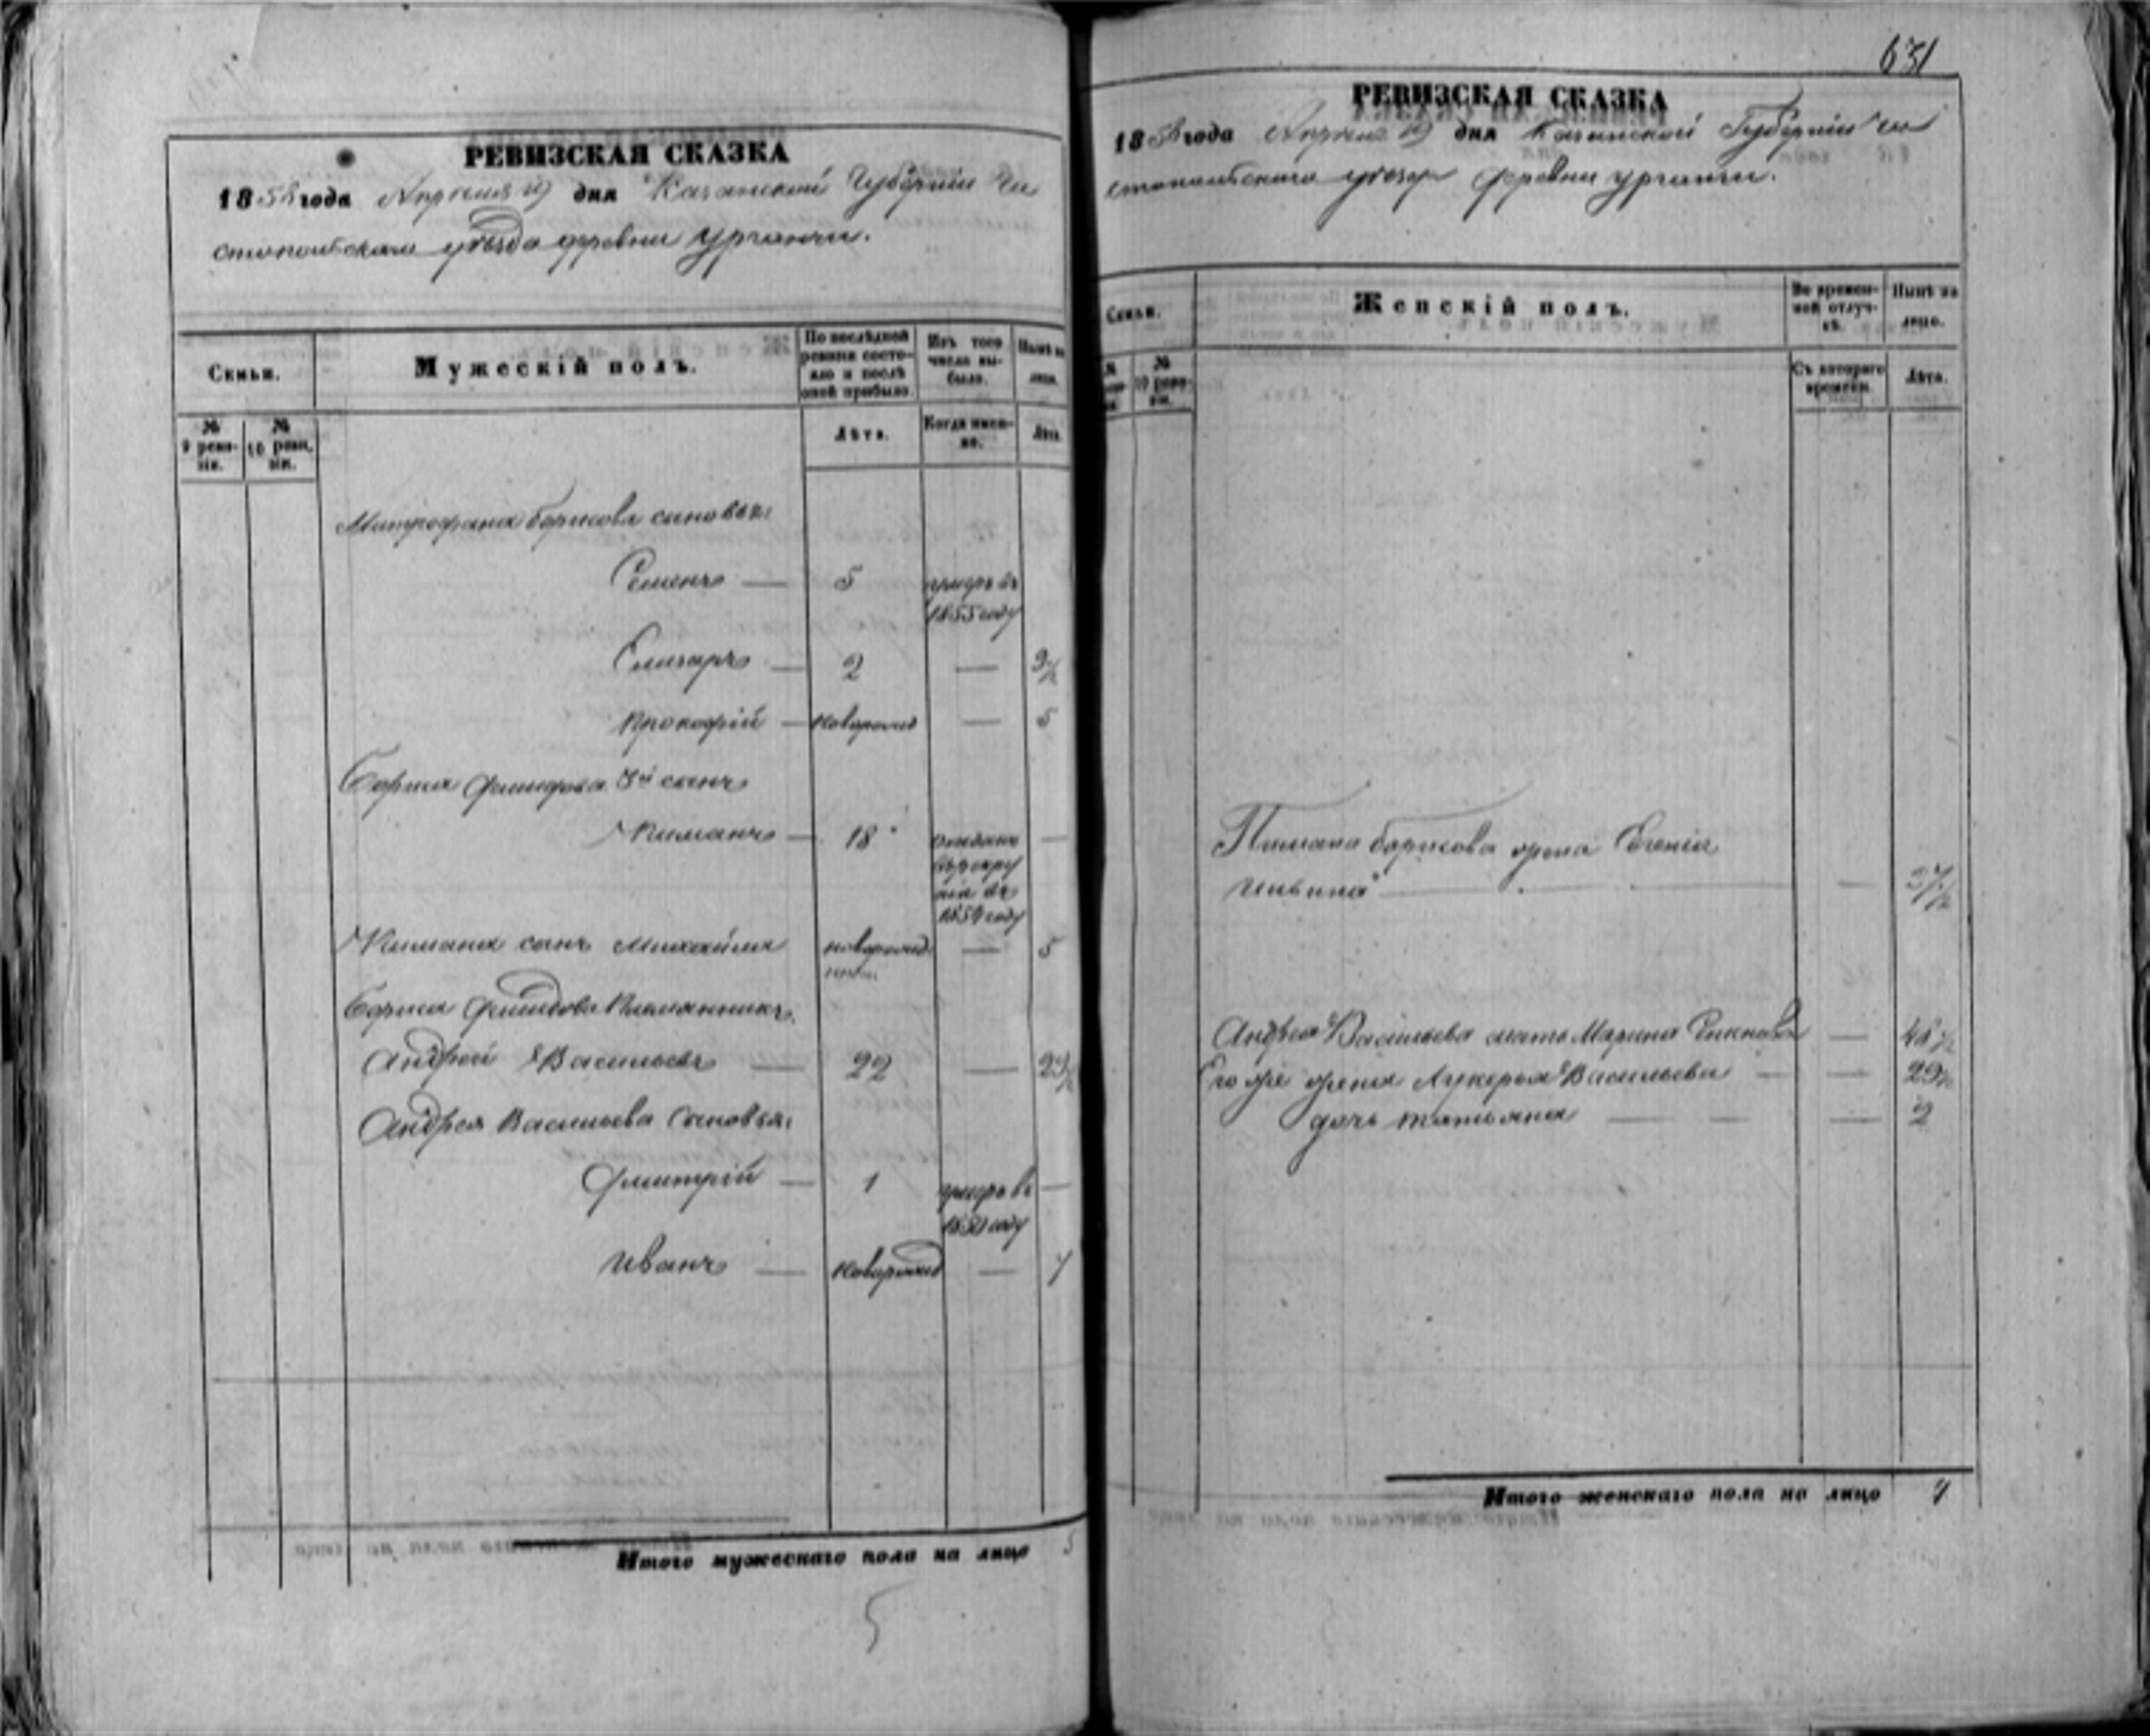 РЕВИЗСКАЯ СКАЗКА
1858 года Апреля дня Казанской Губернии Чи
стопольскаго уѣзда деревни Урганчи.
Семьи.
Мужескій полъ.
По послѣдней ревизіи состояло и послѣ оной прибыло.
Изъ того числа выбыло.
Нынѣ на лицо.
№ 9 ревизіи.
№ 10 ревизіи.
Лѣта.
Когда именно.
Лѣта.
Митрофана Борисова сыновья:
Семенъ — 5 умеръ въ
1855 году
Елизаръ — 2 — 9½
Прокофій — новорожд — 5
Бориса 3й сынъ
18 отданъ
въ рекру
ты въ
1854 году
сынъ Михайла новорожд — 5
Бориса племянникъ
Андрей Васильевъ — 22 — 29½
Андрея Васильева сыновья:
Дмитрій — 1 умеръ въ —
году
Иванъ — новорожд — 7
Итого мужескаго пола на лицо 5
5
631
РЕВИЗСКАЯ СКАЗКА
1858 года Апреля дня Казанской Губерніи Чи
стопольскаго уѣзда деревни Урганчи.
Семьи.
Женскій полъ.
Во временной отлучкѣ.
Нынѣ на лицо.
№ 10 ревизіи.
Съ котораго времени.
Лѣта.
Борисова жена
—
Андрея Васильева мать Марина — 48½
Его же жена Лукерья Васильева — 29½
дочь Татьяна — — — 2
Итого женскаго пола на лицо 4